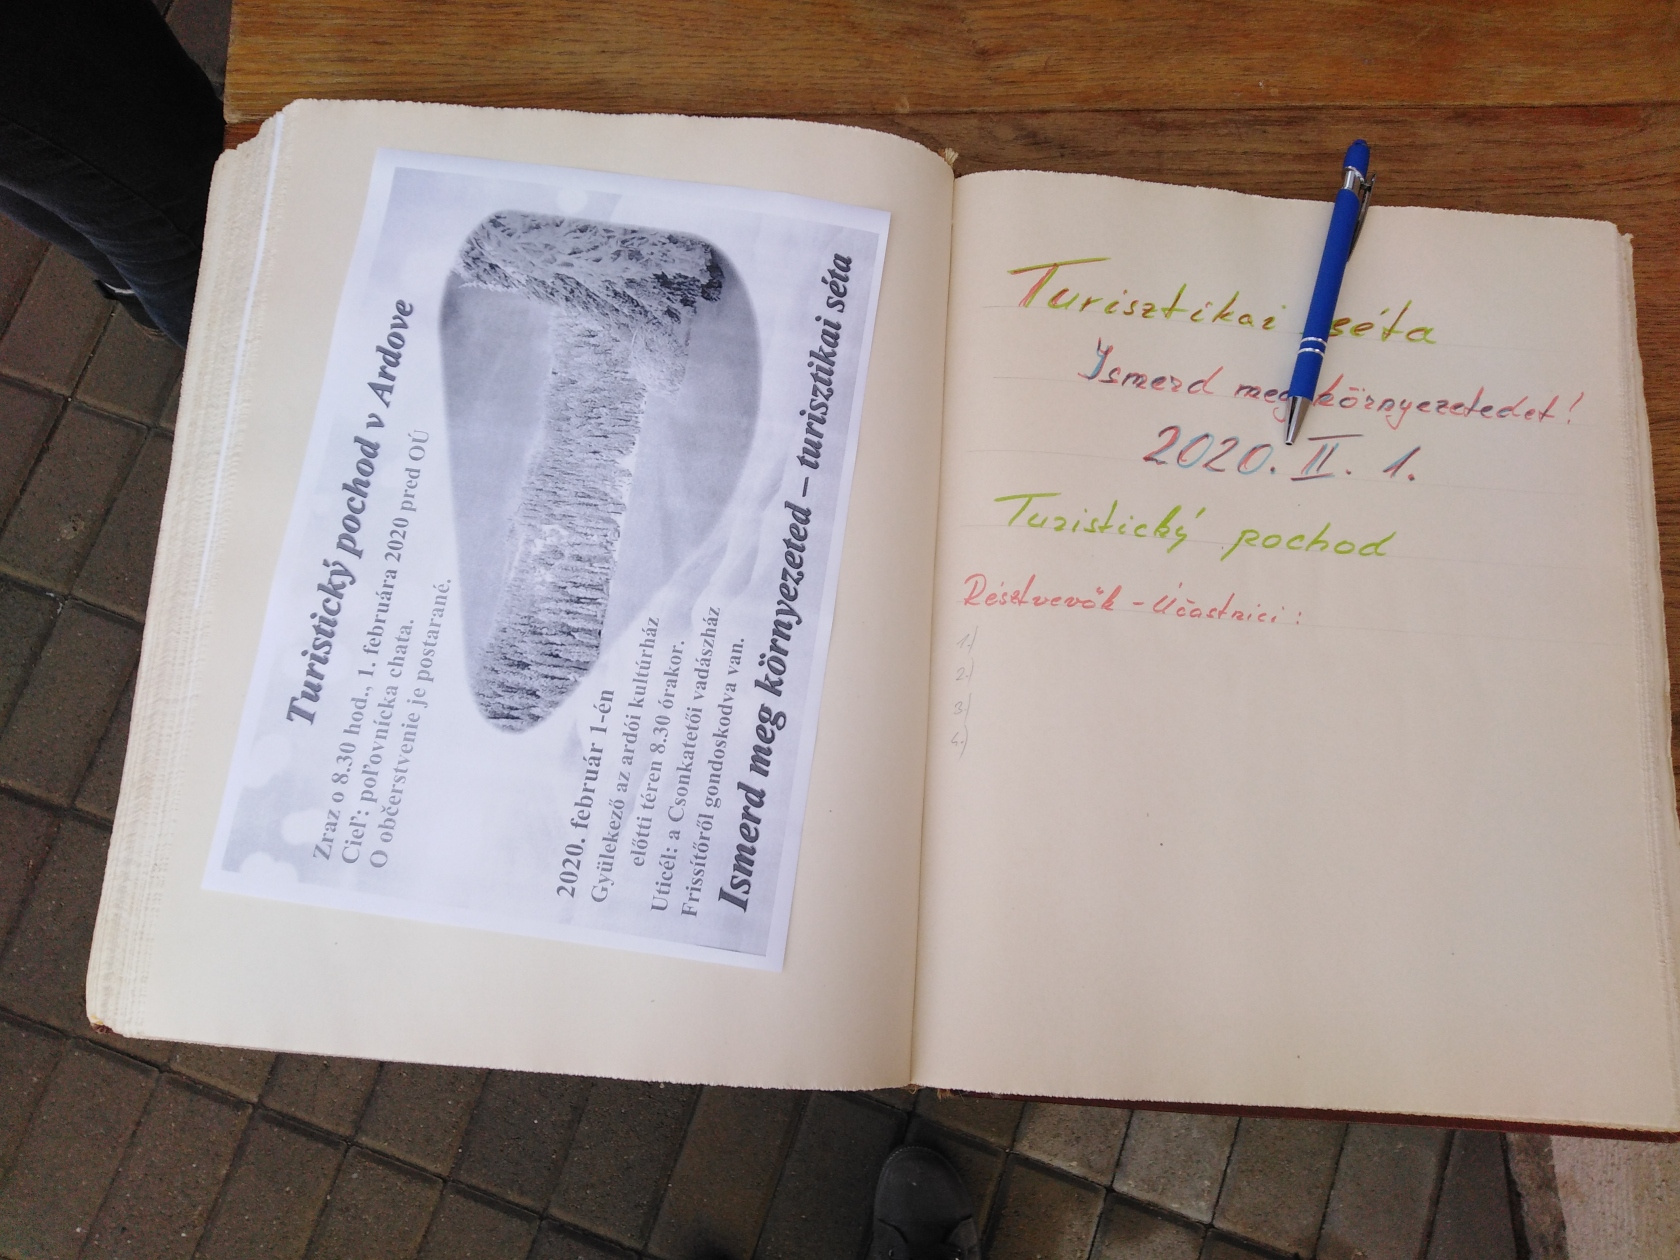 Turistický pochod v Ardove
Zraz o 8.30 hod., 1. februára 2020 pred OÚ
Cieľ: poľovnícka chata.
O občerstvenie je postarané.
2020. február 1-én
Gyülekező az ardói kultúrház
előtti téren 8.30 órakor.
Uticél: a Csonkatetői vadászház
Frissítőről gondoskodva van.
Ismerd meg környezeted – turisztikai séta
Turisztikai séta
Ismerd meg környezetedet!
2020. II. 1.
Turistický pochod
Résztvevők - Účastníci:
1.)
2.)
3.)
4.)